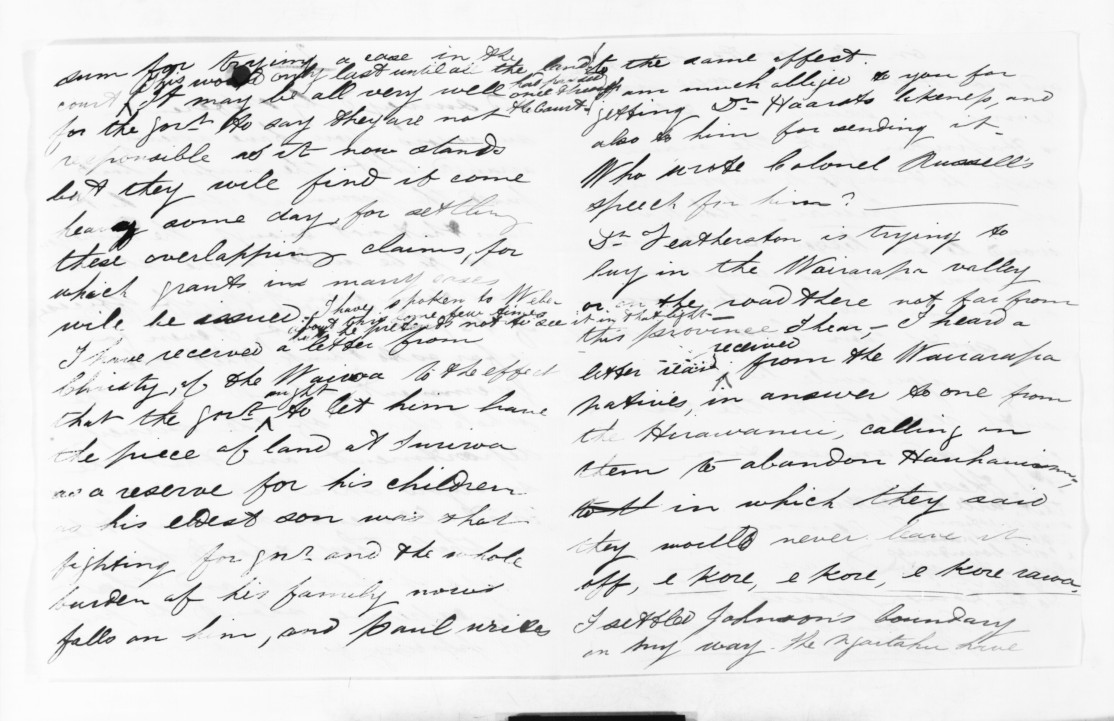 sum for trying a case in the
This would only last until all the land
had passed
once through
the Court.
court. It may be all very well
for the Govt. to say they are not
responsible as it now stands
but they will find it come
heavy some day, for settling
these overlapping claims, for
which grants in many cases
will be issued. I have spoken to Weber
about this one few times
but he pretends not to see it in that light.
I have received a letter from
Christy, of the Wairoa to the effect
that the Govt. ought to let him have
the piece of land at Turiroa
as a reserve for his children
as his eldest son was shot
fighting for Govt. and the whole
burden of his family now
falls on him, and Paul writes
to the same effect.
I am much obliged to you for
getting Dr. Haast's likeness, and
also to him for sending it.
Who wrote Colonel Russell's
speech for him?
Dr. Featherston is trying to
buy in the Wairarapa valley
or on the road there not far from
this province I hear, – I heard a
letter read received from the Wairarapa
natives, in answer to one from
the calling on
them to abandon Hauhauism,
in which they said
they would never leave it
off, e kore, e kore, e kore rawa.
I settled Johnson's boundary
on my way. The Ngaitahu have